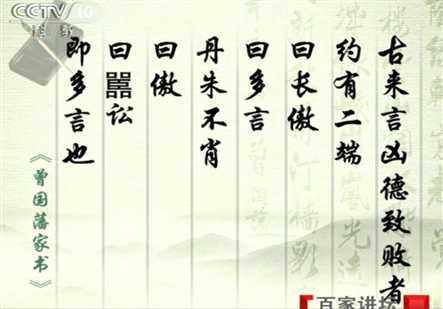 古来言凶德致败者
约有二端
曰长傲
曰多言
丹朱不肖
曰傲
曰嚚讼
即多言也
《曾国藩家书》
CCTV 10
百家讲坛